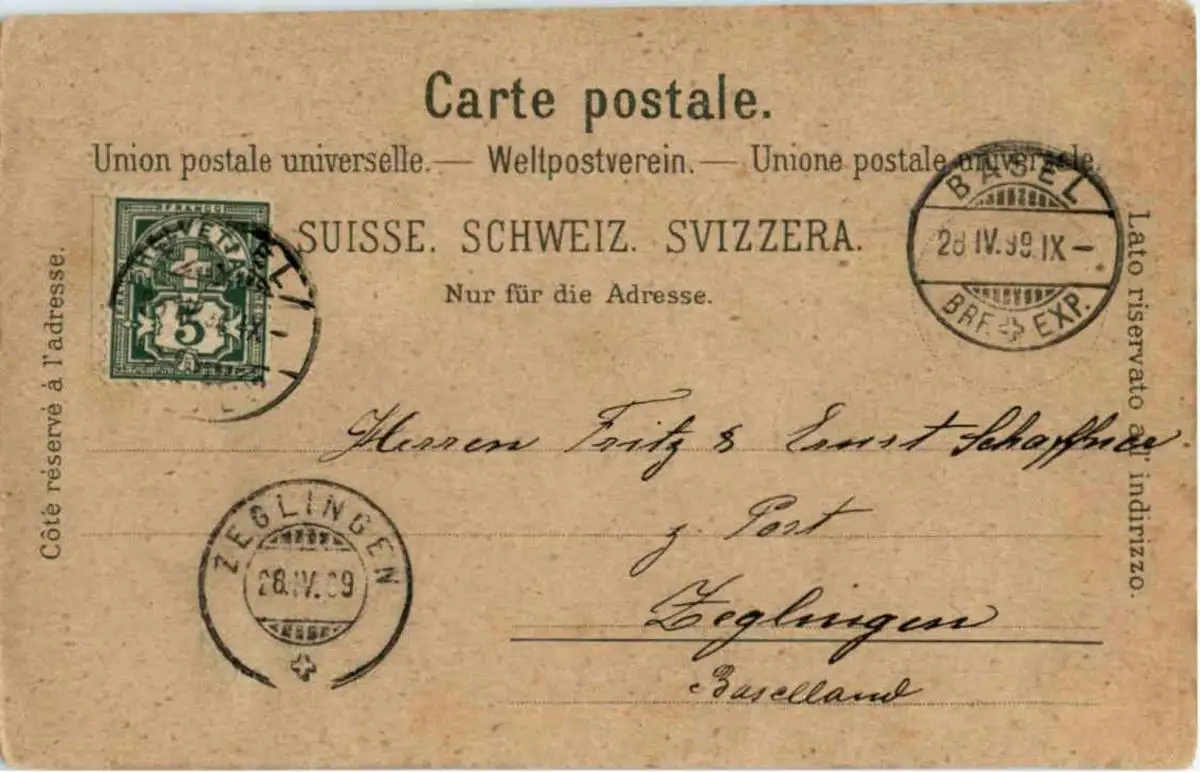 Carte postale.
Union postale universelle.— Weltpostverein.— Unione postale universale.
SUISSE. SCHWEIZ. SVIZZERA.
Nur für die Adresse.
Côté réservé à l'adresse.
FRANCO
HELVETIA
5
BASEL
28 IV. 99 IX –
BRF. EXP.
Lato riservato all'indirizzo.
Herren Fritz & Ernst Schaffner
z. Post
Zeglingen
Baselland
ZEGLINGEN
28. IV. 99